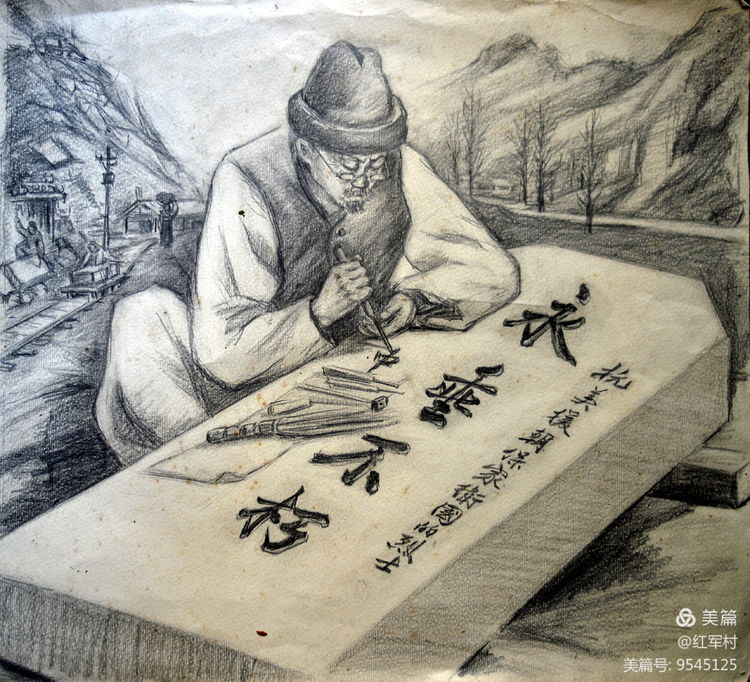 抗美援朝保家衛國的烈士
永垂不朽
中
美篇
@红军村
美篇号: 9545125